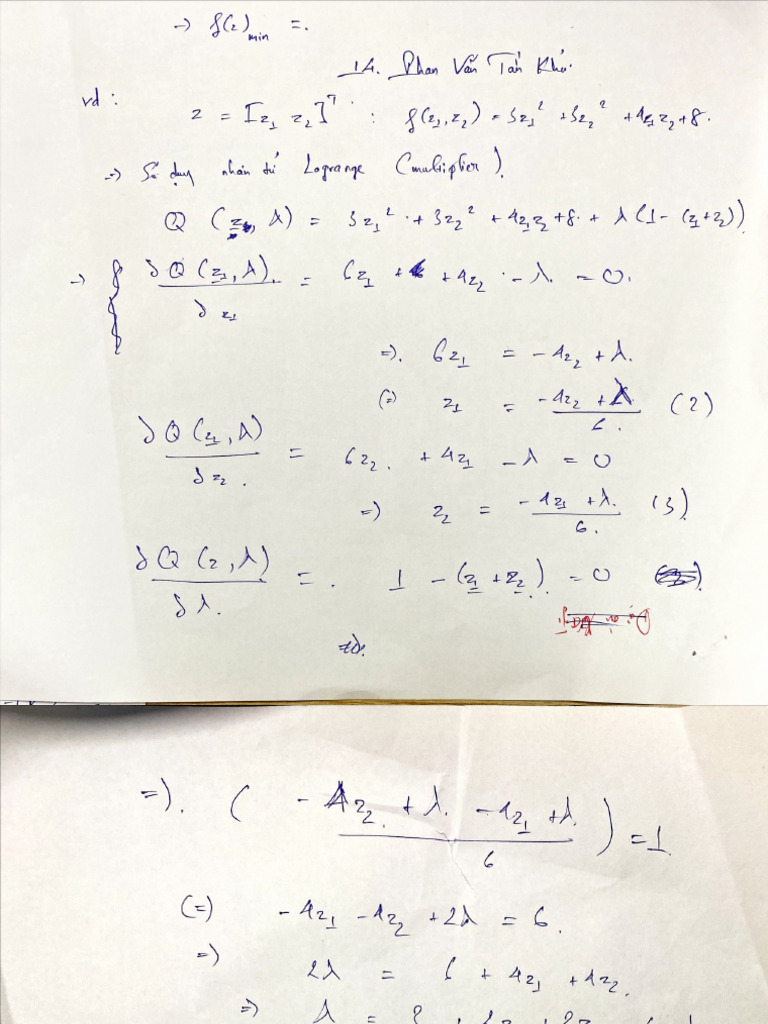 → f(z)min =.
14. Phan Văn Tấn Khả.
vd :
z = [z1 z2]^T : f(z1, z2) = 3z1² + 3z2² + 4z1z2 + 8.
→ Sử dụng nhân tử Lagrange (multiplier).
Q (z, λ) = 3z1² + 3z2² + 4z1z2 + 8 + λ (1 - (z1+z2))
→ { ∂Q (z1, λ) / ∂z1 = 6z1 + 4z2 - λ = 0.
=). 6z1 = -4z2 + λ.
(=) z1 = (-4z2 + λ) / 6. (2)
∂Q (z1, λ) / ∂z2. = 6z2 + 4z1 - λ = 0
=) z2 = (-4z1 + λ) / 6. (3)
∂Q (z, λ) / ∂λ. =. 1 - (z1 + z2) = 0
=). ( (-4z2 + λ - 4z1 + λ) / 6 ) = 1
(=) -4z1 - 4z2 + 2λ = 6.
=) 2λ = 6 + 4z1 + 4z2.
=) λ =